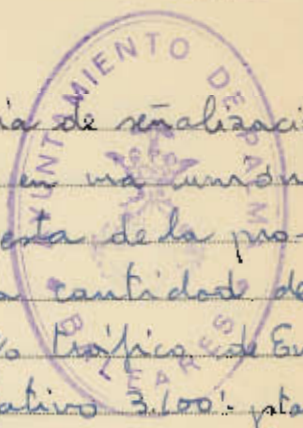 AYUNTAMIENTO DE PALMA
BALEARES
ía de señalizaci
en una
esta de la pro-
cantidad de
tráfico de
ativo 3.600'- pta